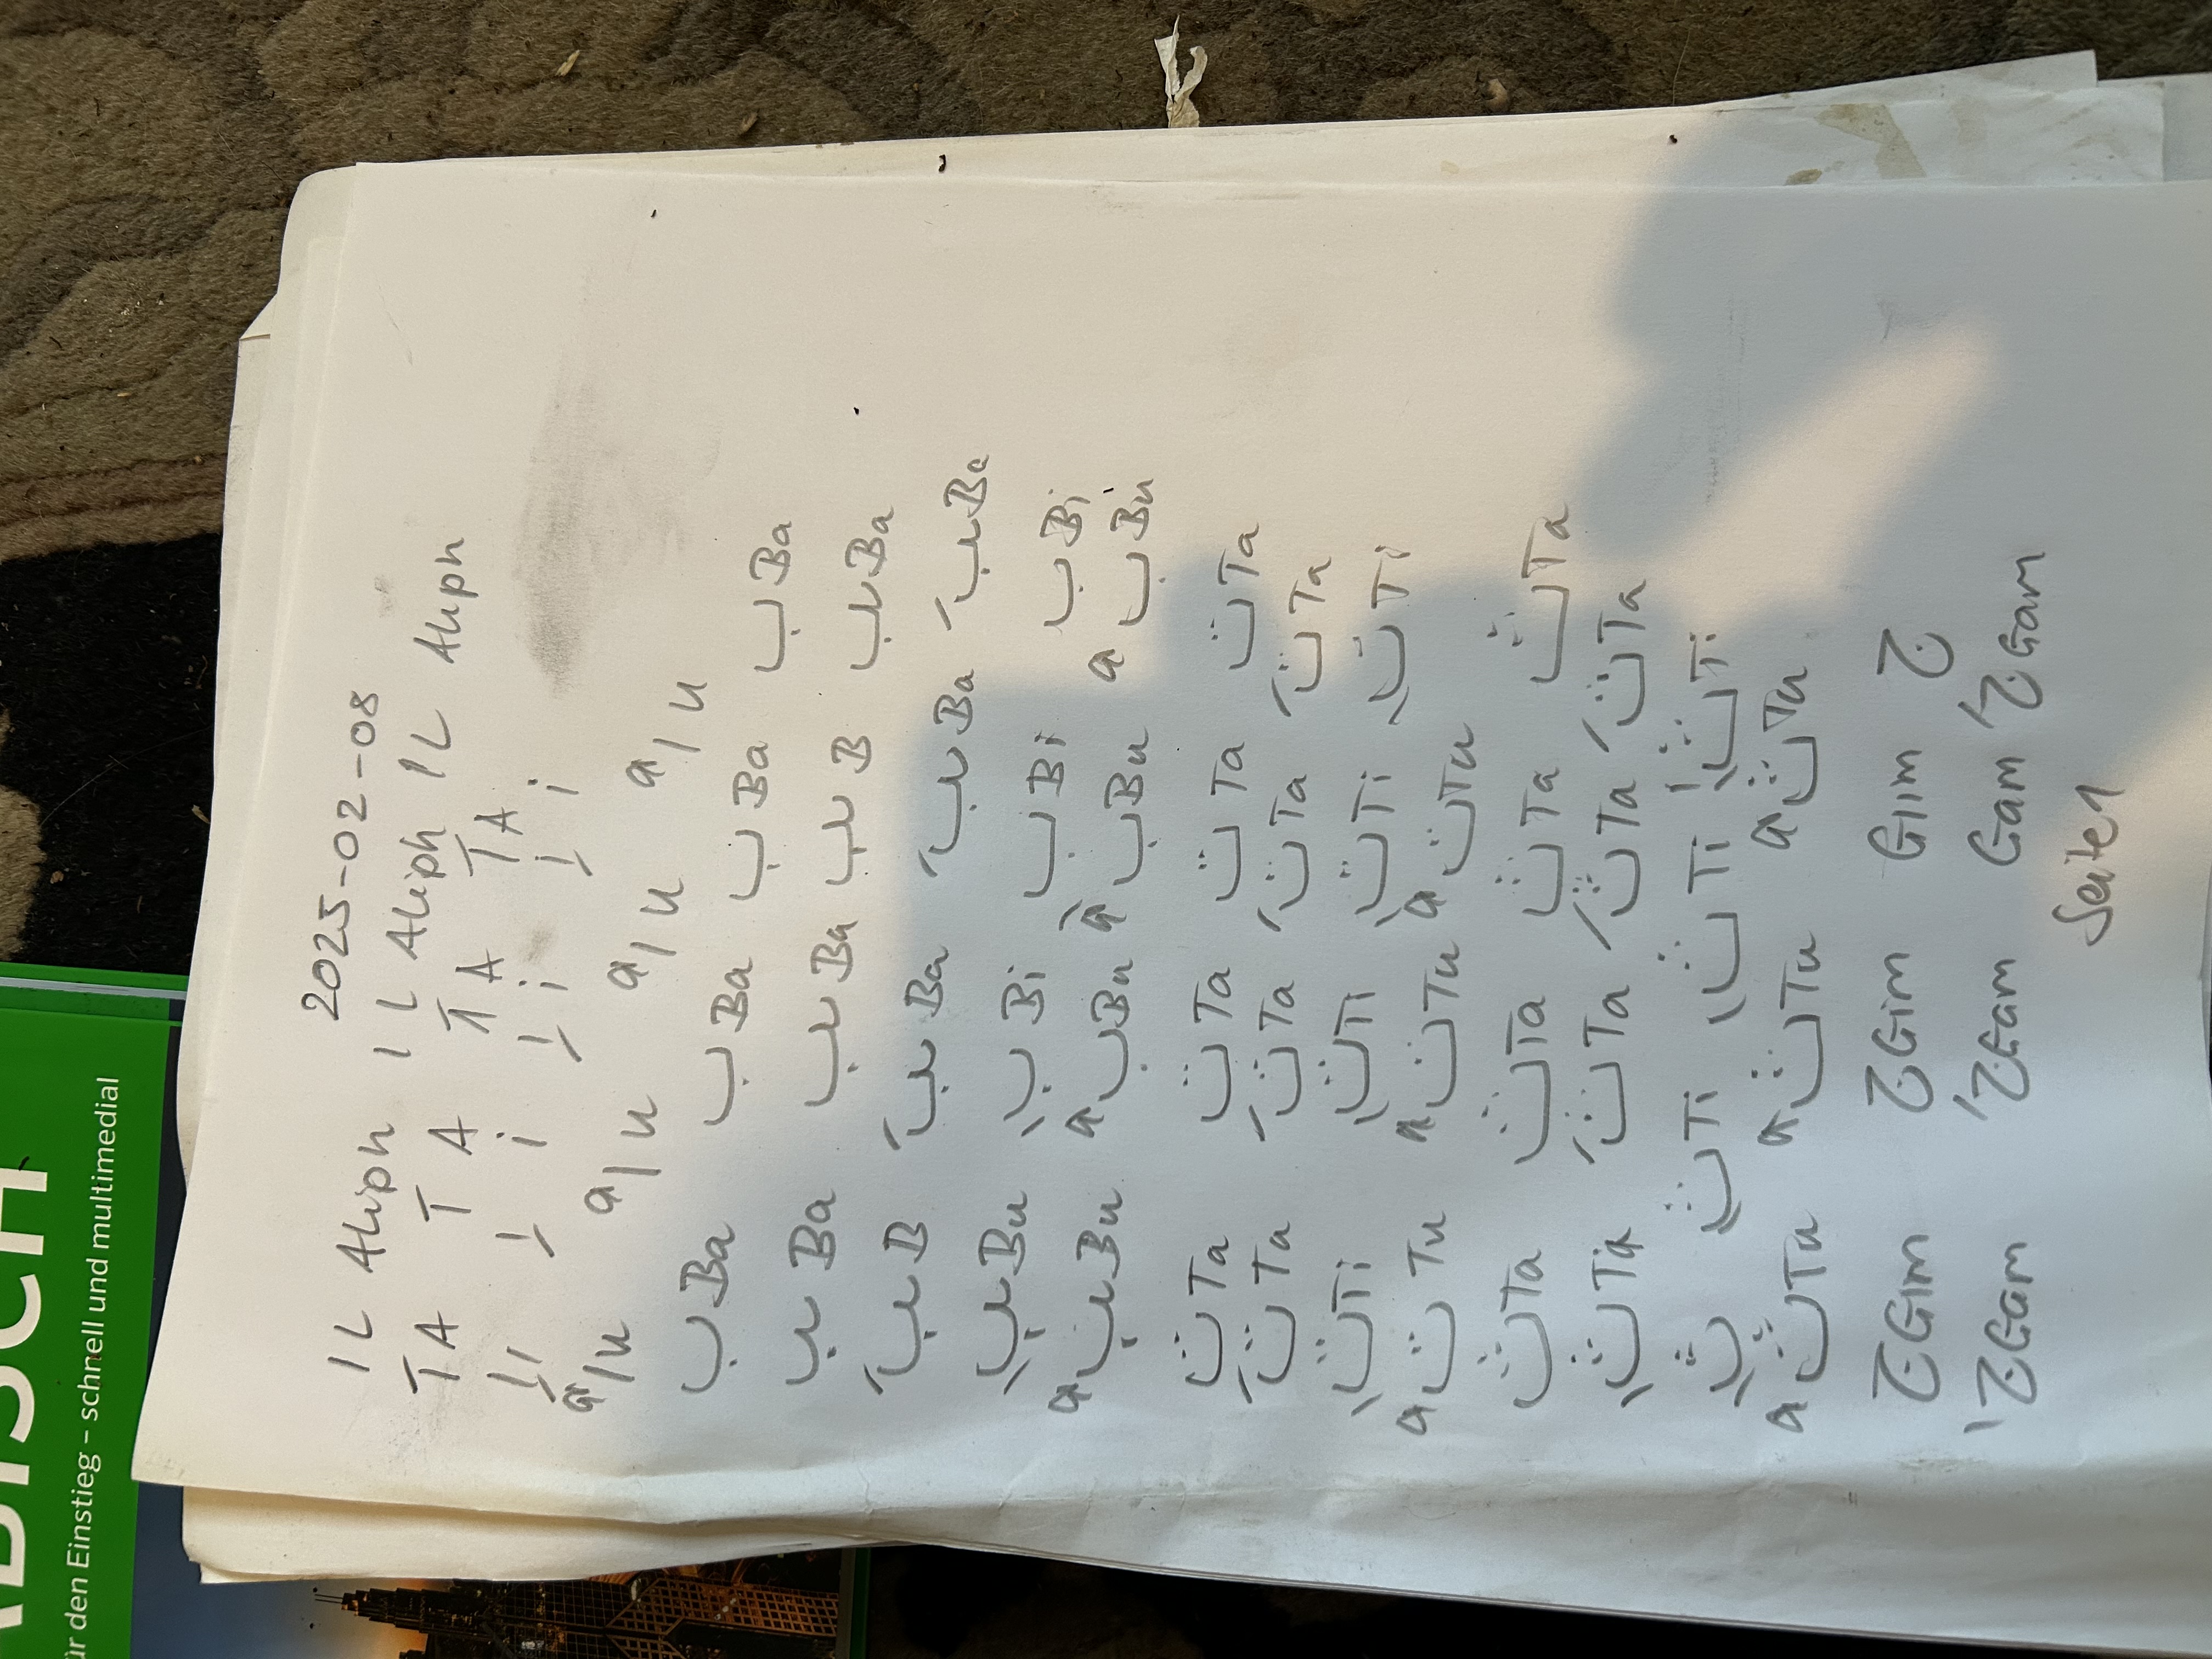 2025-02-08
IL Aliph IL Aliph IL Aliph
TA TA TA TA
اِ i اِ i اِ i
اُ u اُ u اُ u اُ u
ب Ba ب Ba ب Ba ب Ba
ب Ba ب Ba ب B ب Ba
بَ B بَ Ba بَ Ba بَ Ba
بِ Bu بِ Bi ب Bi ب Bi
بُ Bu بُ Bu بُ Bu بُ Bu
ت Ta ت Ta ت Ta ت Ta
تَ Ta تَ Ta تَ Ta تَ Ta
تِ Ti تِ Ti تِ Ti تِ Ti
تُ Tu تُ Tu تُ Tu
ث Ta ث Ta ث Ta ث Ta
ثِ Ta ثَ Ta ثَ Ta ثَ Ta
ثِ ثِ Ti ثِ Ti ثِ Ti
ثُ Tu ثُ Tu ثُ Tu
ج Gim ج Gim Giim ج
جَ Gam جَ Gam Gam جَ Gam
Seite 1
ABISCH
ür den Einstieg – schnell und multimedial